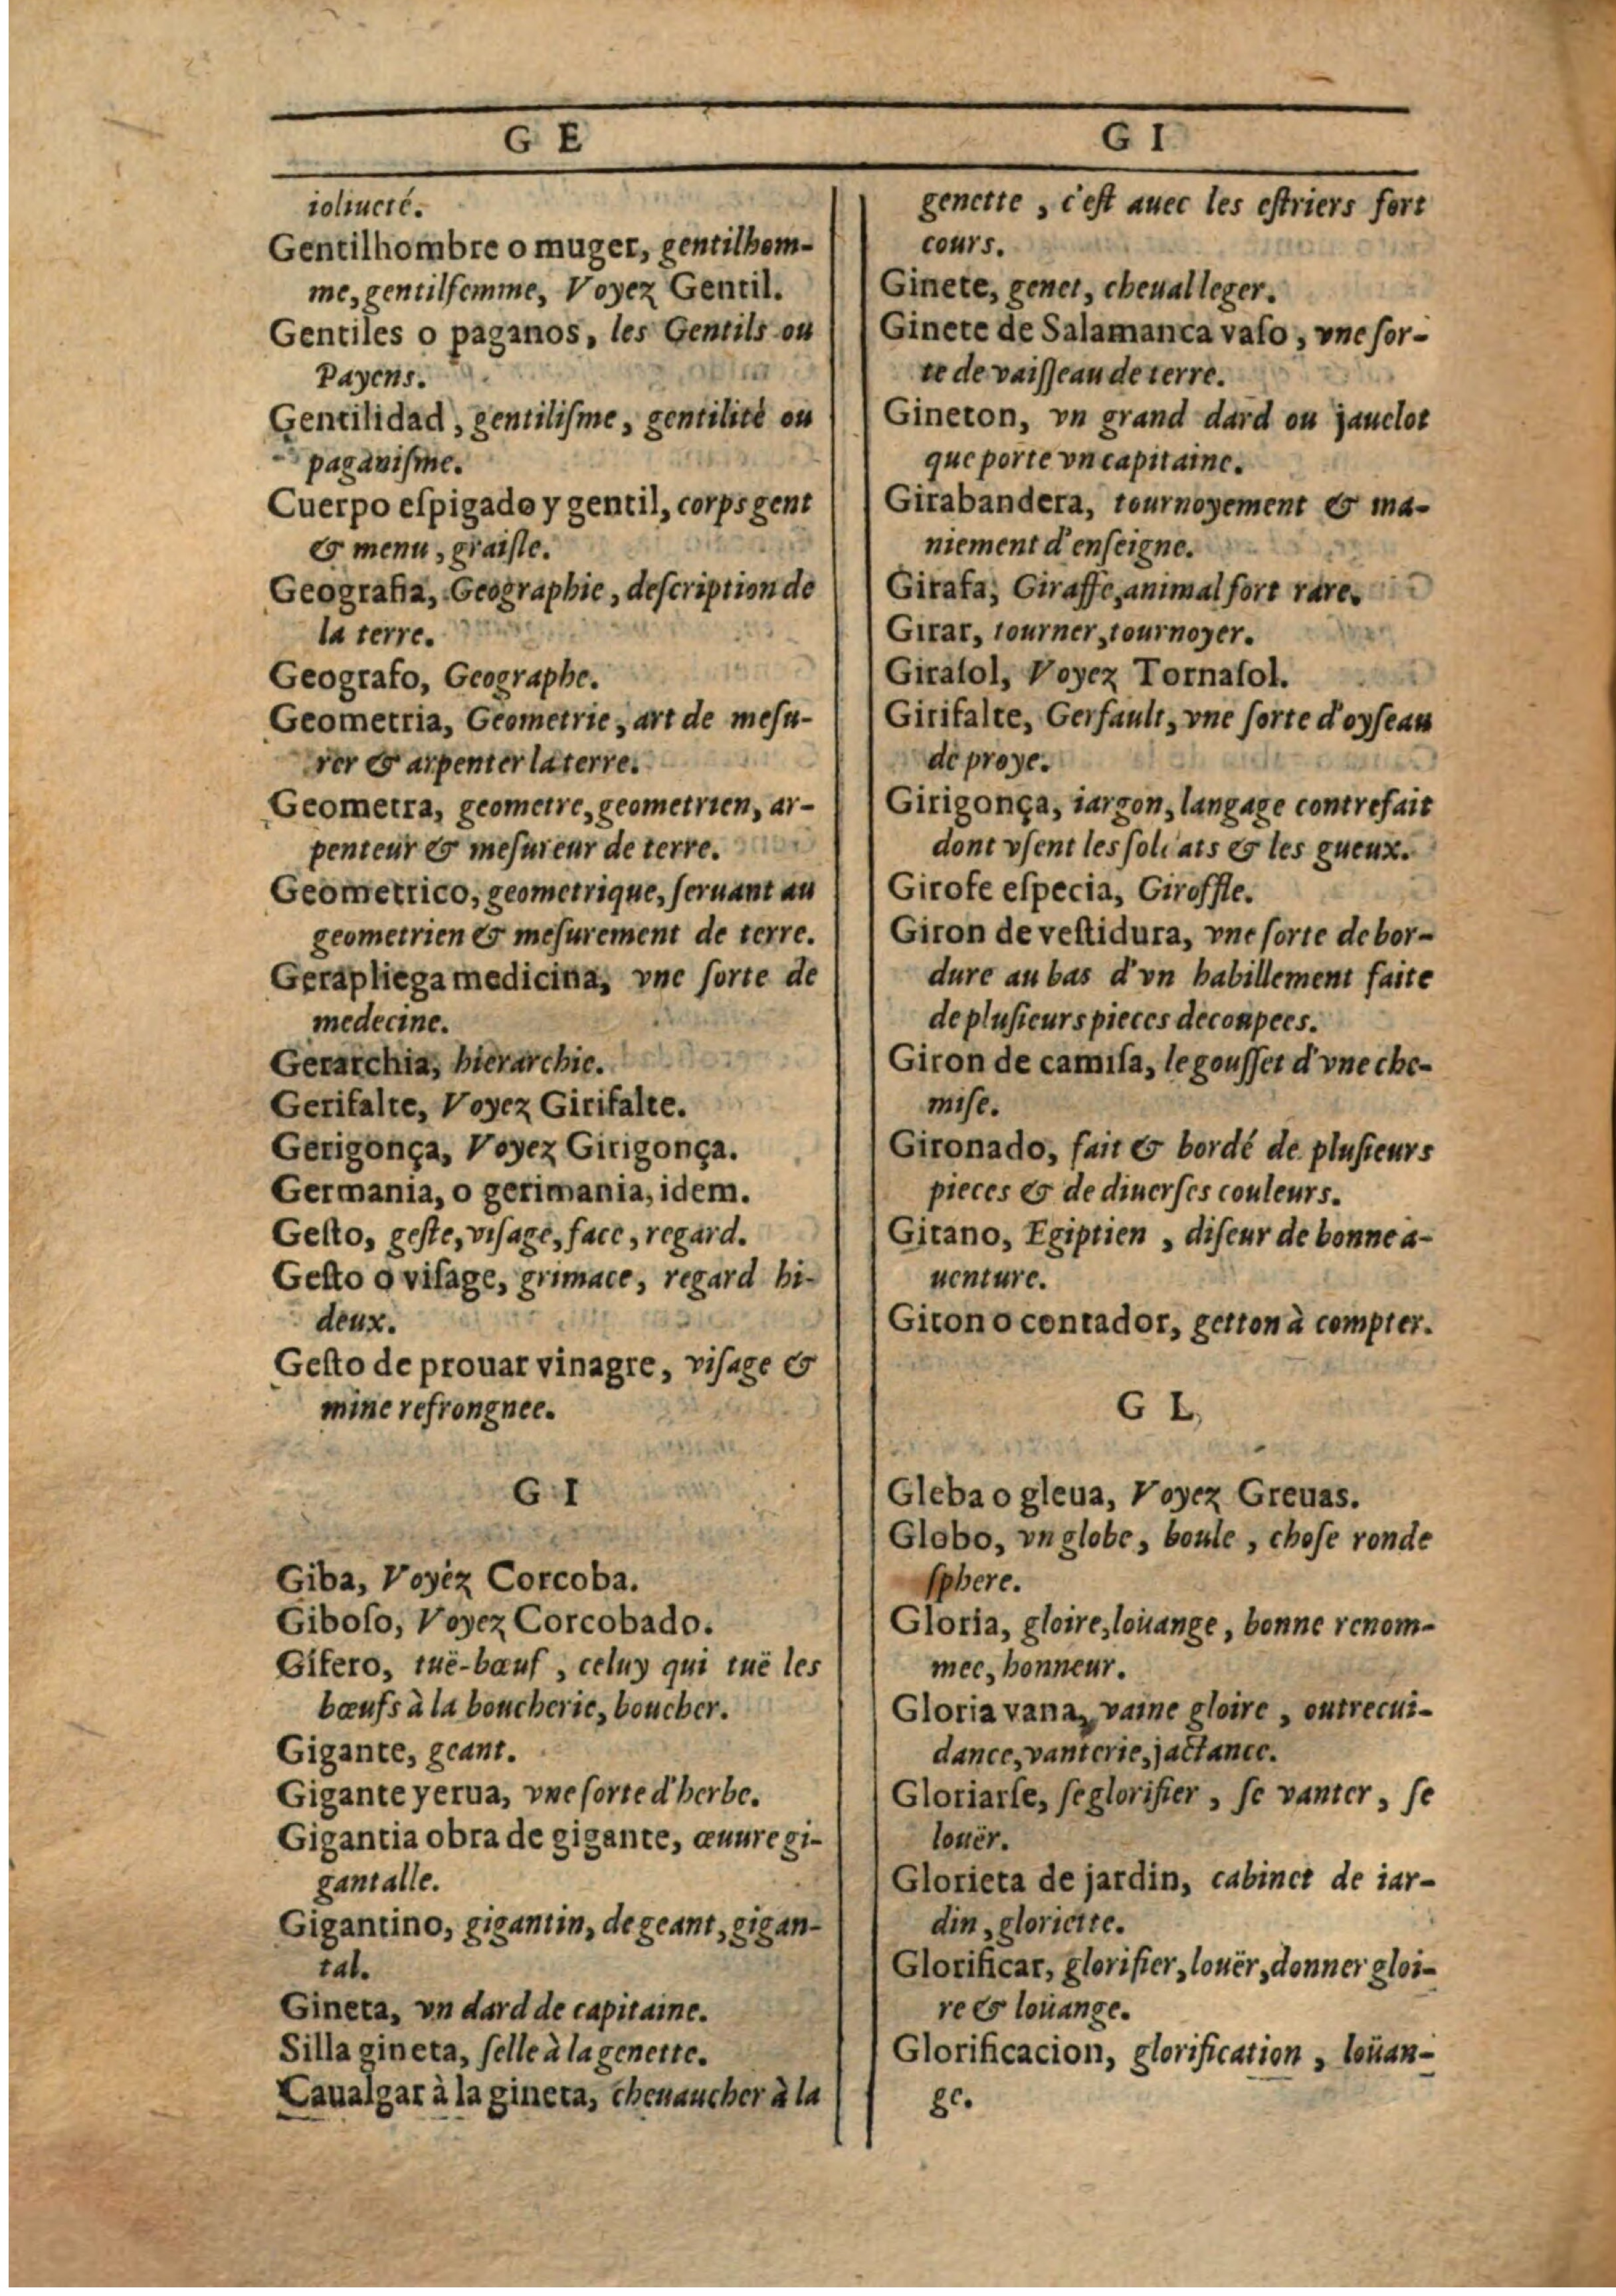 G E
iolıueté.
Gentilhombre o muger, gentilhom-
me, gentilfemme, Voyez Gentil.
Gentiles o paganos, les Gentils ou
Payens.
Gentilidad, gentiliſme, gentilité ou
paganiſme.
Cuerpo eſpigado y gentil, corps gent
& menu, graiſle.
Geografia, Geographie, deſcription de
la terre.
Geografo, Geographe.
Geometria, Geometrie, art de meſu-
rer & arpenter la terre.
Geometra, geometre, geometrien, ar-
penteur & meſureur de terre.
Geometrico, geometrique, ſeruant au
geometrien & meſurement de terre.
Gerapliega medicina, vne ſorte de
medecine.
Gerarchia, hierarchie.
Gerifalte, Voyez Girifalte.
Gerigonça, Voyez Girigonça.
Germania, o gerimania, idem.
Geſto, geſte, viſage, face, regard.
Geſto o viſage, grimace, regard hi-
deux.
Geſto de prouar vinagre, viſage &
mine refrongnee.
G I
Giba, Voyez Corcoba.
Giboſo, Voyez Corcobado.
Gifero, tuë-bœuf, celuy qui tuë les
bœufs à la boucherie, boucher.
Gigante, geant.
Gigante yerua, vne ſorte d'herbe.
Gigantia obra de gigante, œuure gi-
gantalle.
Gigantino, gigantin, de geant, gigan-
tal.
Gineta, vn dard de capitaine.
Silla gineta, ſelle à la genette.
Caualgar à la gineta, cheuaucher à la
G I
genette, c'eſt auec les eſtriers fort
cours.
Ginete, genet, cheual leger.
Ginete de Salamanca vaſo, vne ſor-
te de vaiſſeau de terre.
Gineton, vn grand dard ou jauelot
que porte vn capitaine.
Girabandera, tournoyement & ma-
niement d'enſeigne.
Girafa, Giraffe, animal fort rare.
Girar, tourner, tournoyer.
Giraſol, Voyez Tornaſol.
Girifalte, Gerfault, vne ſorte d'oyſeau
de proye.
Girigonça, iargon, langage contrefait
dont vſent les ſoldats & les gueux.
Girofe eſpecia, Giroffle.
Giron de veſtidura, vne ſorte de bor-
dure au bas d'vn habillement faite
de pluſieurs pieces decoupees.
Giron de camiſa, le gouſſet d'vne che-
miſe.
Gironado, fait & bordé de pluſieurs
pieces & de diuerſes couleurs.
Gitano, Egiptien, diſeur de bonne a-
uenture.
Giton o contador, getton à compter.
G L
Gleba o gleua, Voyez Greuas.
Globo, vn globe, boule, choſe ronde
ſphere.
Gloria, gloire, loüange, bonne renom-
mee, honneur.
Gloria vana, vaine gloire, outrecui-
dance, vanterie, jactance.
Gloriarſe, ſe glorifier, ſe vanter, ſe
louër.
Glorieta de jardin, cabinet de iar-
din, gloriette.
Glorificar, glorifier, louër, donner gloi-
re & loüange.
Glorificacion, glorification, loüan-
ge.